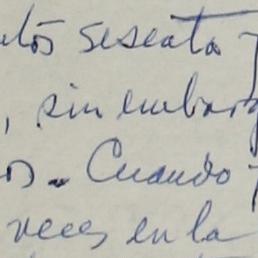 ntos seseata
, sin embarg
os. Cuando
veces en la